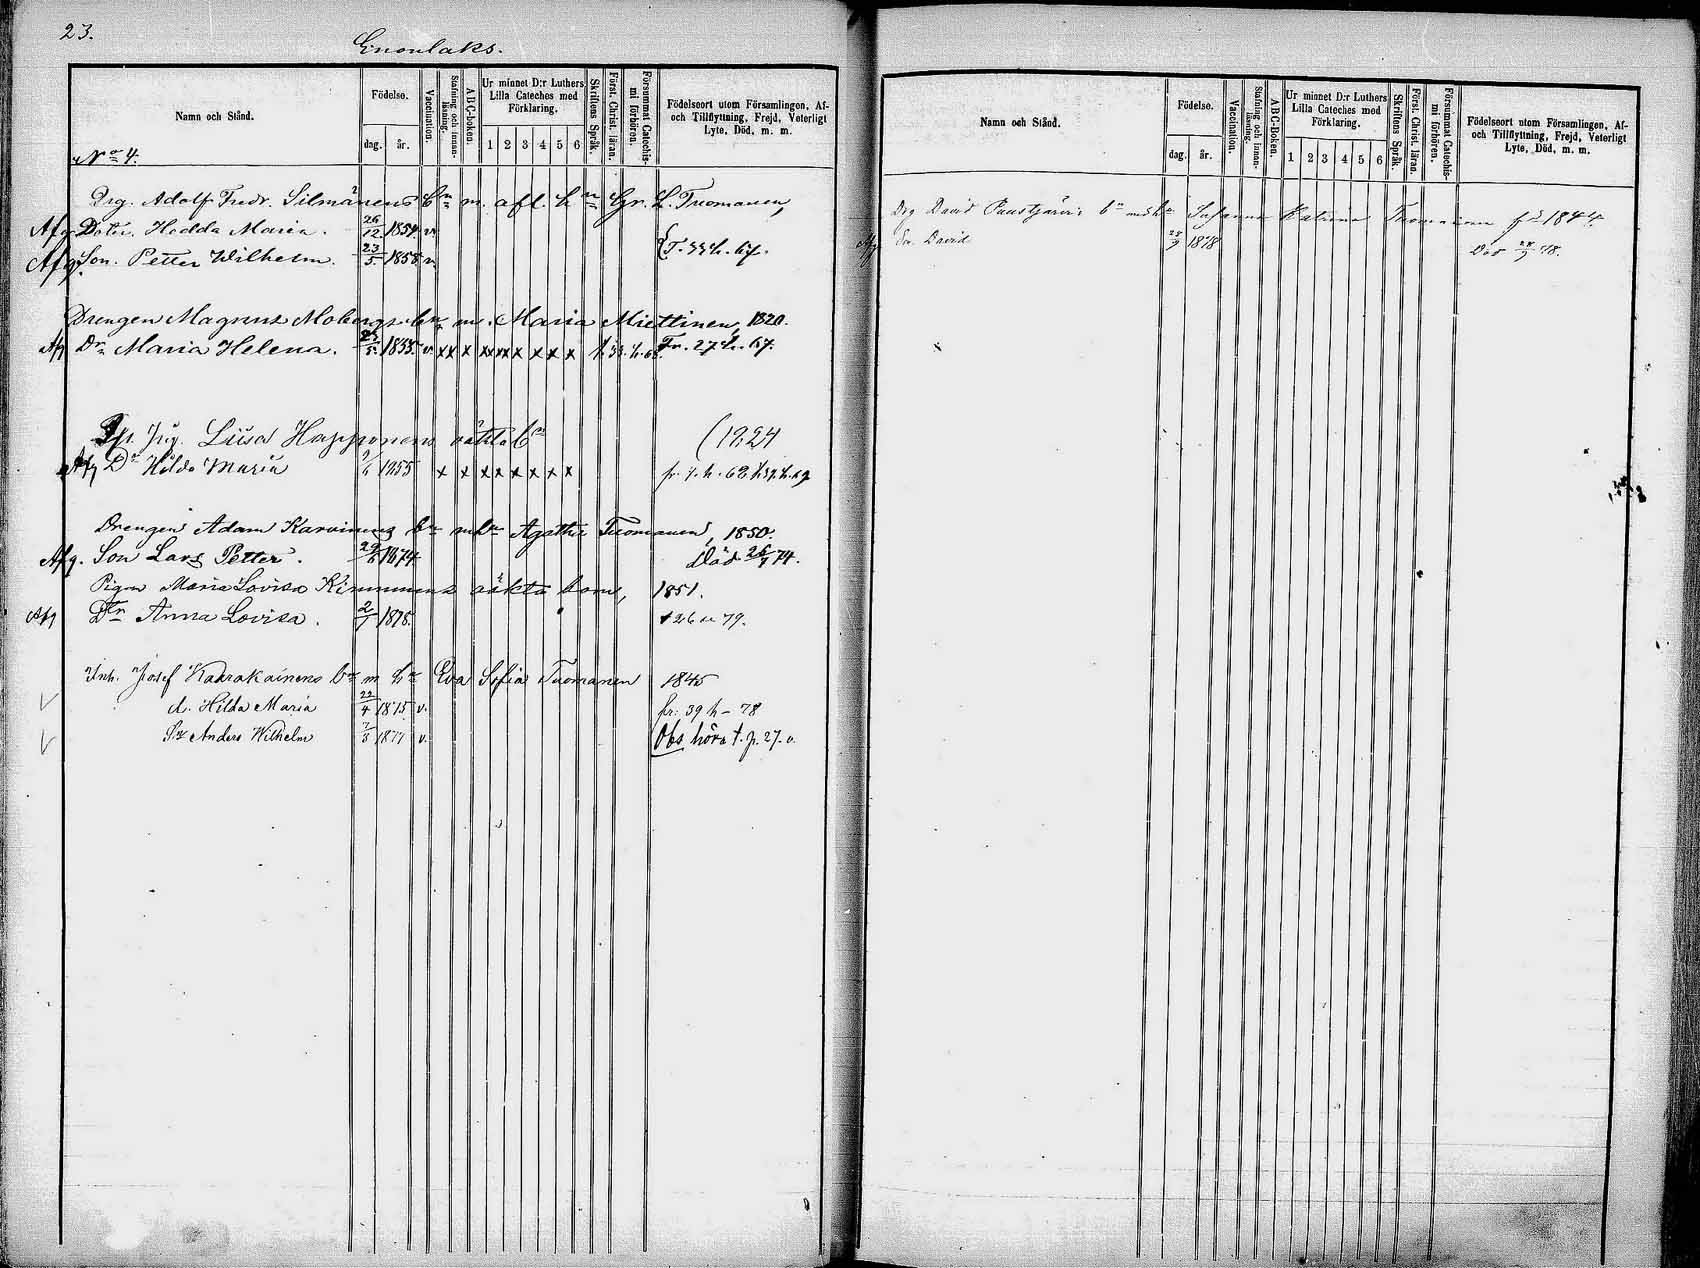 23.
Enonlaks.
Namn och Stånd.
Födelse.
dag.
år.
Vaccination.
Stafning och innanläsning.
ABC-boken.
Ur minnet D:r Luthers Lilla Cateches med Förklaring.
1 2 3 4 5 6
Skriftens Språk.
Först. Christ. läran.
Försummat Catechismi förhören.
Födelseort utom Församlingen, Af-
och Tillflyttning, Frejd, Veterligt
Lyte, Död, m. m.
No 4.
Drg. Adolf Fredr. Silmänens bn m. afl. h Gr. L. Tuomanen,
Afg Dotter. Hedda Maria. 26/12 1854. v.
Afg. Son. Petter Wilhelm. 23/5 1858 v.
Drengen Magnus Mobergs bn m. Maria Miettinen, 1820.
Afg Dr Maria Helena. 1855. v x x x x x x x x x Fr. 27 h. 67.
Pig. Liisa Happonens oäkta bn (1824
Afg Dr Hilda Maria 1855 x x x x x x x x
Drengen Adam Karvinens bn m hu Agatha Tuomanen, 1850.
Afg. Son Lars Petter. 1874 Död 74.
Pigan Maria Lovisa Kinnunens oäkta barn, 1851.
Afg Dtr Anna Lovisa. 1878. † 26 79.
Inh. Josef Kaarakainens bn m hu Eva Sofia Tuomanen 1845
d. Hilda Maria 22/4 1875 v. fr. 39 h - 78
Sn Anders Wilhelm 1877 v. Obs höra t. p. 27. v.
Namn och Stånd.
Födelse.
dag.
år.
Vaccination.
Stafning och innanläsning.
ABC-Boken.
Ur minnet D:r Luthers Lilla Cateches med Förklaring.
1 2 3 4 5 6
Skriftens Språk.
Först. Christ. läran.
Försummat Catechismi förhören.
Födelseort utom Församlingen, Af-
och Tillflyttning, Frejd, Veterligt
Lyte, Död, m. m.
Drg David Puustjärvis bn m hu Susanna Katarina Tuomanen 1844.
Afg Sn. David 1878 Död 78.